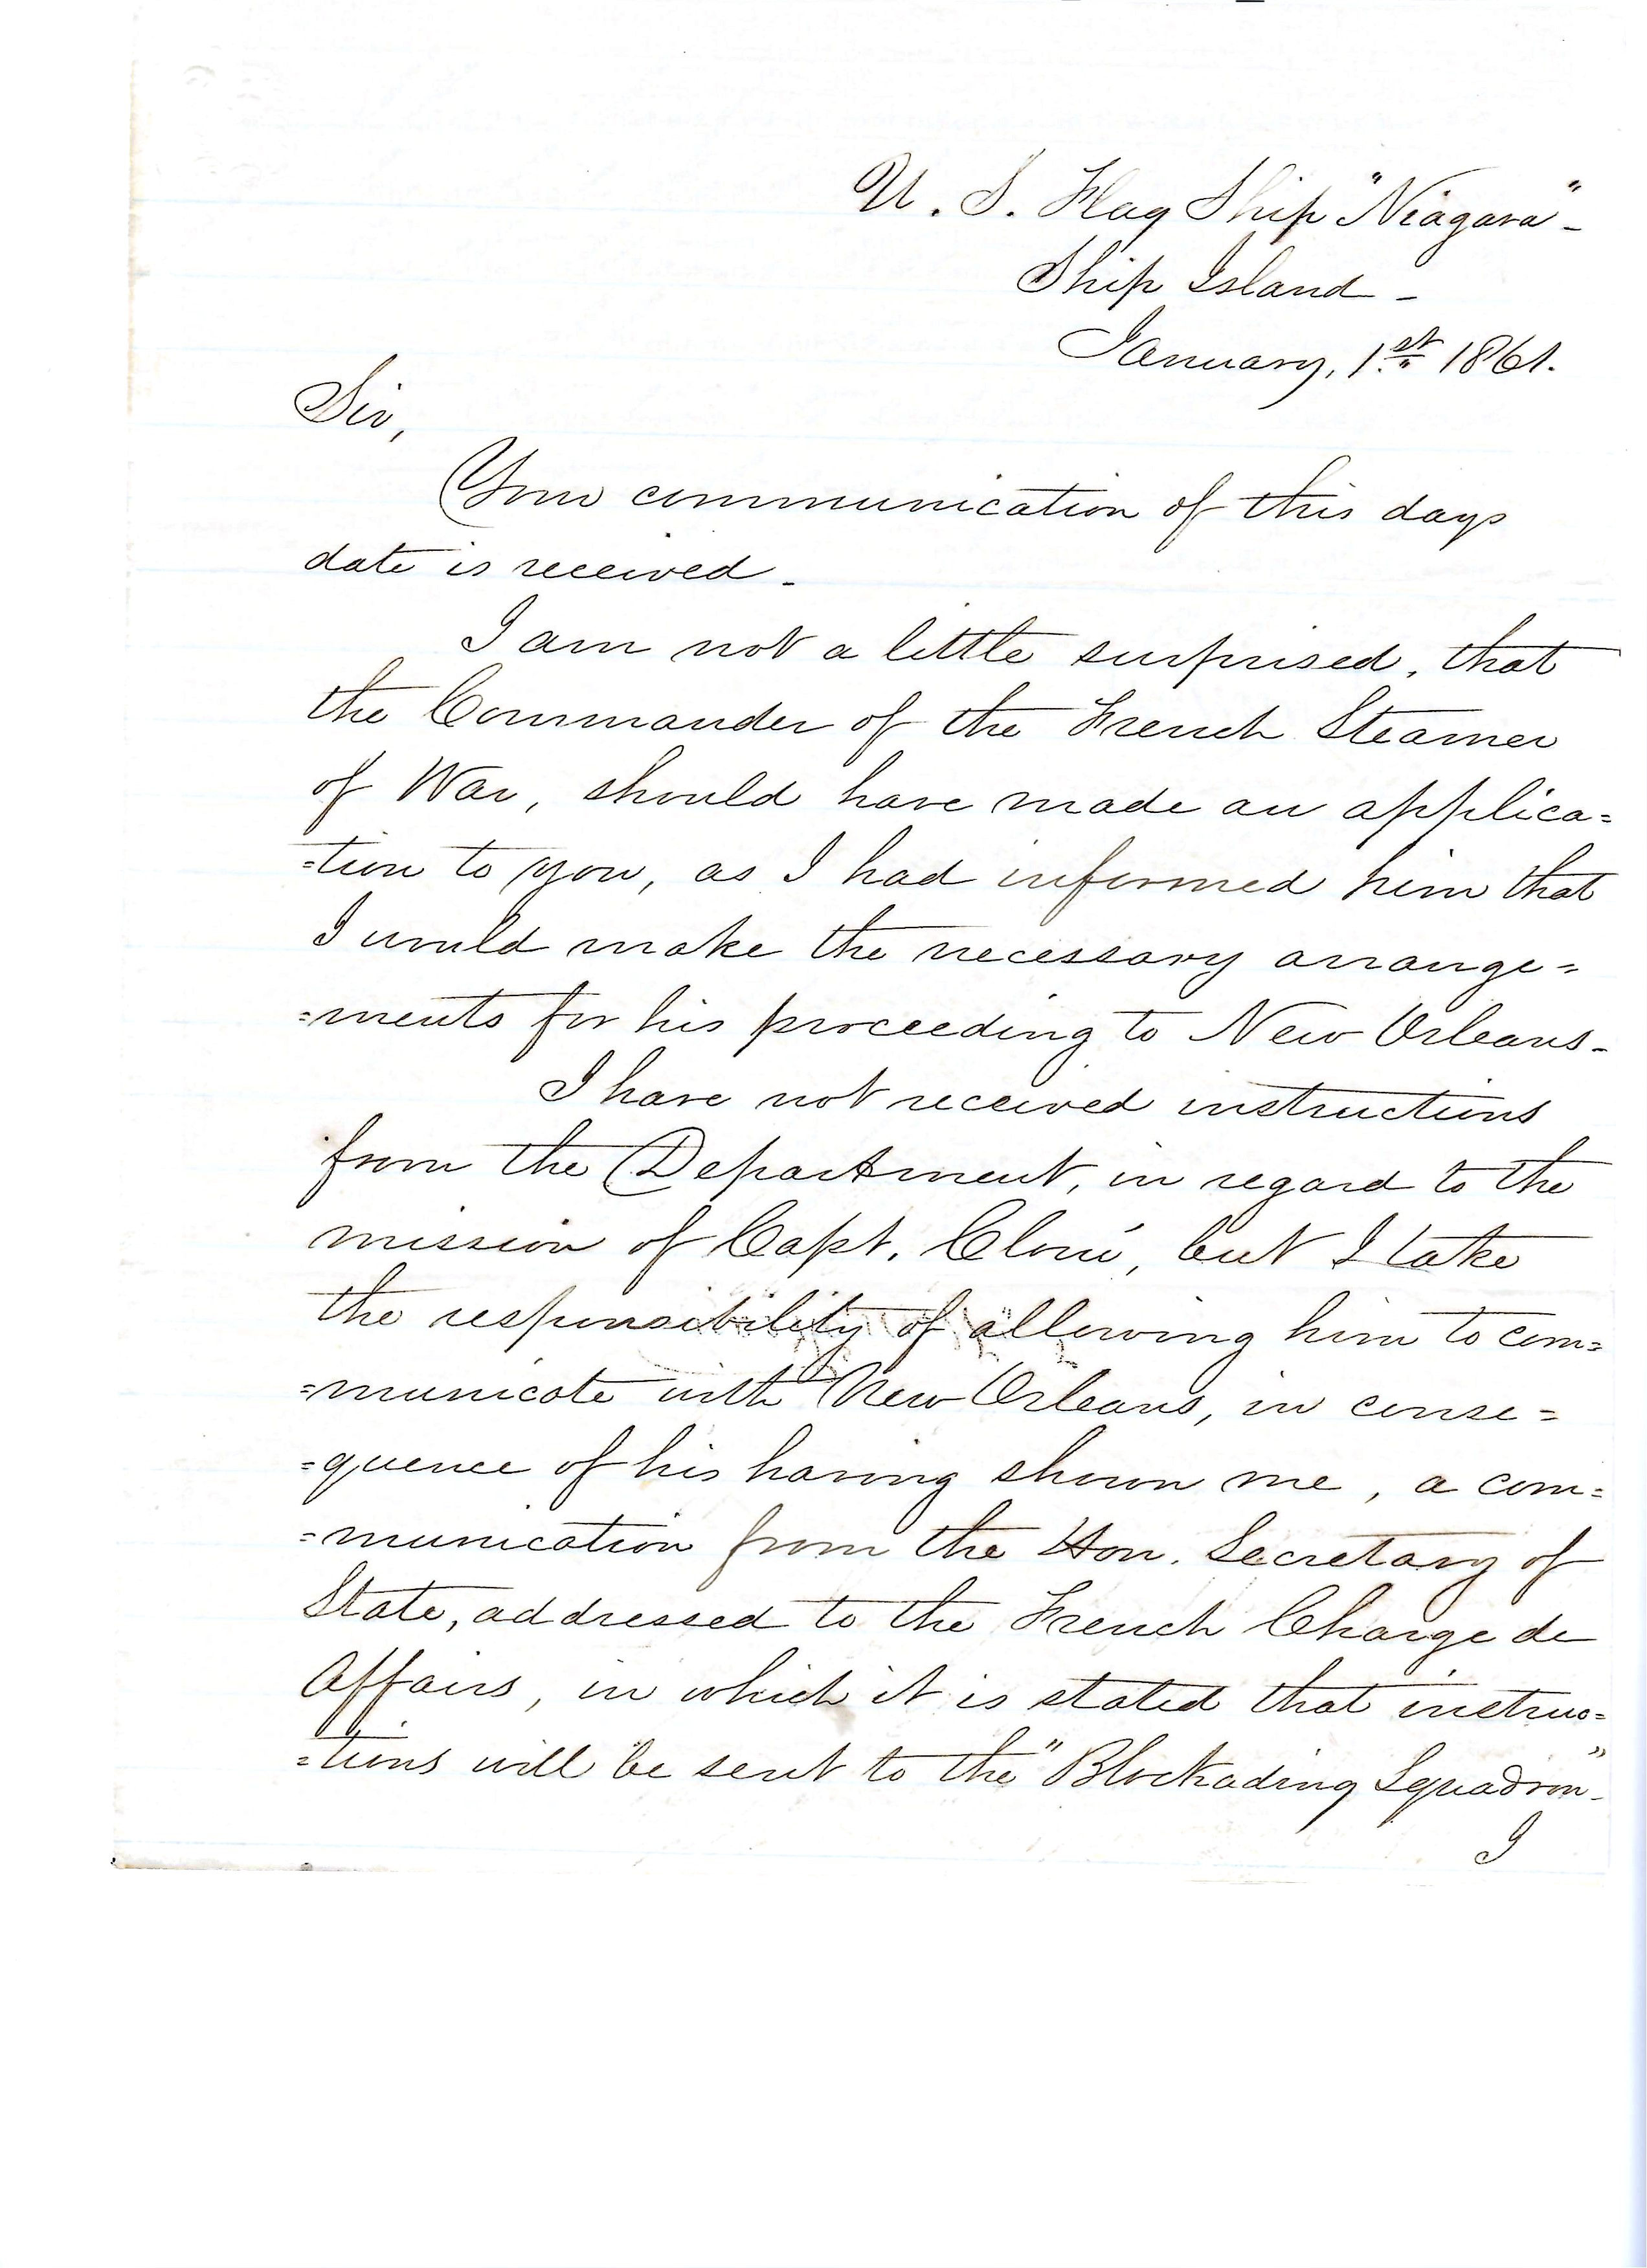 U. S. Flag Ship "Niagara" -
Ship Island -
January, 1st 1861.
Sir,
Your communication of this days
date is received -
I am not a little surprised, that
the Commander of the French Steamer
of War, should have made an applica=
=tion to you, as I had informed him that
I would make the necessary arrange=
=ments for his proceeding to New Orleans -
I have not received instructions
from the Department, in regard to the
mission of Capt. Cloué, but I take
the responsibility of allowing him to com=
=municate with New Orleans, in conse=
=quence of his having shown me, a com=
=munication from the Hon. Secretary of
State, addressed to the French Charge de
Affairs, in which it is stated that instruc=
=tions will be sent to the "Blockading Squadron" -
I